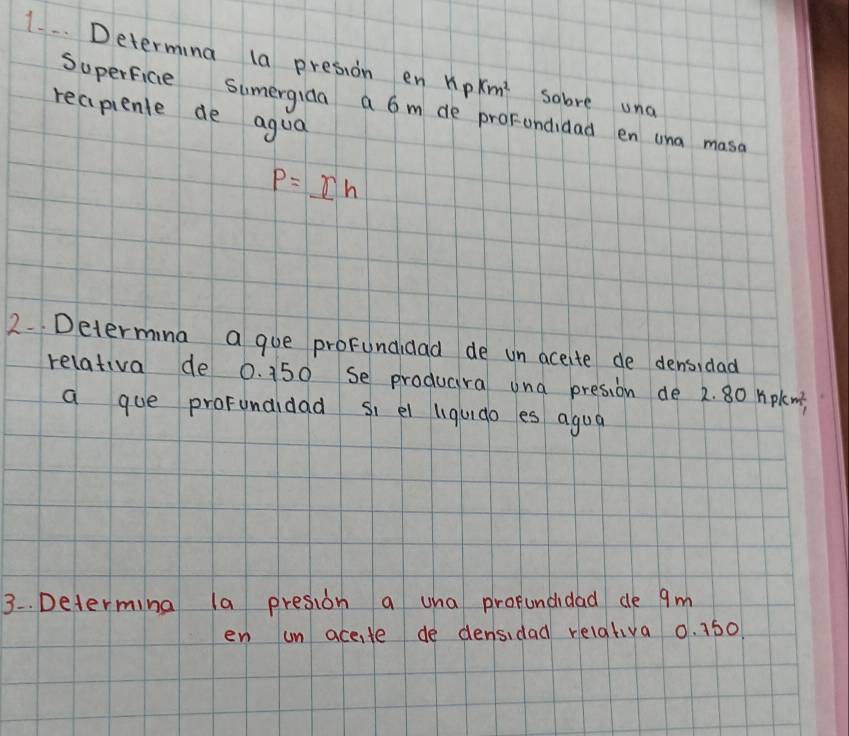 1--- Determina la presión en Kpkm² sobre una
superficie sumergida a 6m de profundidad en una masa
recipiente de agua
P = r h
2-. Determina a que profundidad de un aceite de densidad
relativa de 0.750 se producira una presión de 2.80 Kpkm²,
a que profundidad si el liquido es agua
3-. Determina la presión a una profundidad de 9m
en un aceite de densidad relativa 0.750.